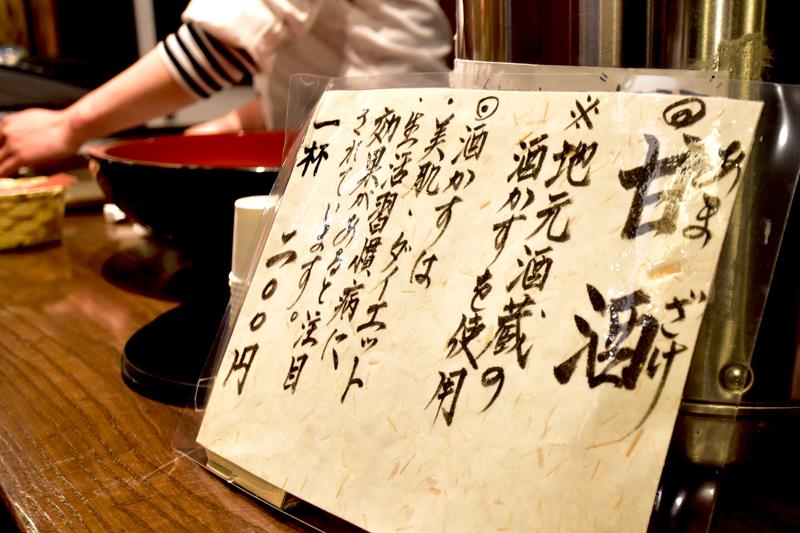 ◎甘酒
あまざけ
※地元酒蔵の
酒かすを使用
◎酒かすは
・美肌・ダイエット
・生活習慣病に、
効果があると注目
されています。
一杯 二〇〇円